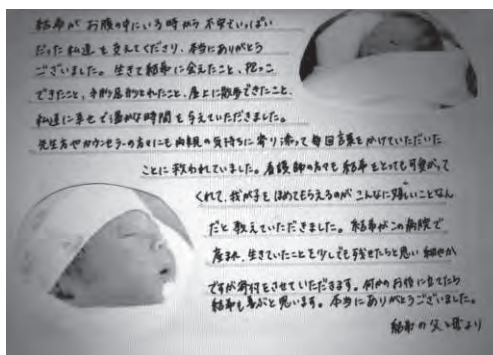 結希が お腹の中にいる時から 不安でいっぱい
だった私達を支えてくださり、本当にありがとう
ございました。生きて結希に会えたこと、抱っこ
できたこと、手形足形とれたこと、屋上に散歩できたこと、
私達に幸せで温かな時間を与えていただきました。
先生方やカウンセラーの方々にも内親の気持ちに寄り添って毎回言葉をかけていただいた
ことに救われていました。看護師の方々も結希をとっても可愛がって
くれて、我が子をほめてもらえるのがこんなに嬉しいことなん
だと教えていただきました。結希がこの病院で
産まれ、生きていたことを少しでも残せたらと思い 細やか
ですが寄付をさせていただきます。何かのお役に立てたら
結希も喜ぶと思います。本当にありがとうございました。
結希の父と母より